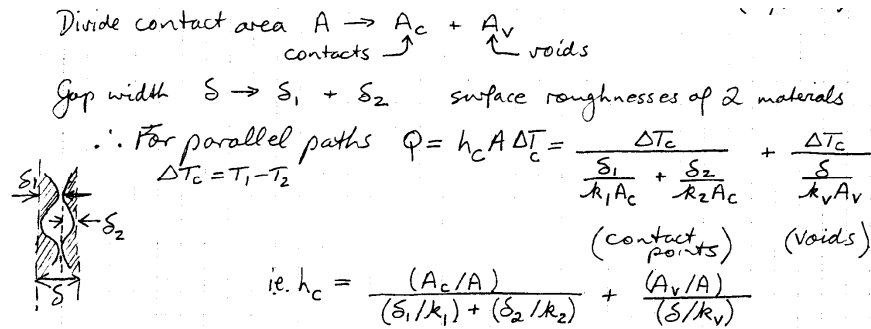 Divide contact area A → A_c + A_v
contacts voids
Gap width δ → δ₁ + δ₂ surface roughnesses of 2 materials
∴ For parallel paths Q = h_c A ΔT_c = ΔT_c / (δ₁/(k₁A_c) + δ₂/(k₂A_c)) + ΔT_c / (δ/(k_vA_v))
ΔT_c = T₁ - T₂
δ₁
δ₂
(contact points) (voids)
δ
i.e. h_c = (A_c/A) / ((δ₁/k₁) + (δ₂/k₂)) + (A_v/A) / (δ/k_v)